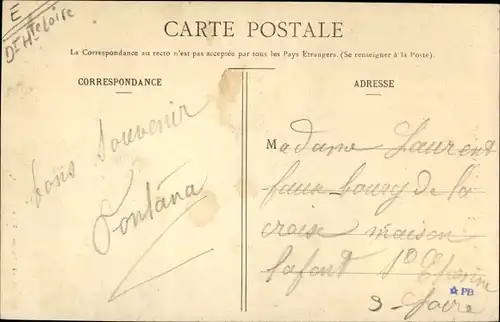 E
Dt Hte Loire
CARTE POSTALE
La Correspondance au recto n'est pas acceptée par tous les Pays Étrangers. (Se renseigner à la Poste).
CORRESPONDANCE
ADRESSE
bons Souvenir
Fontana
Madame Laurent
faux bourg de la
croise maison
Lafont
PB